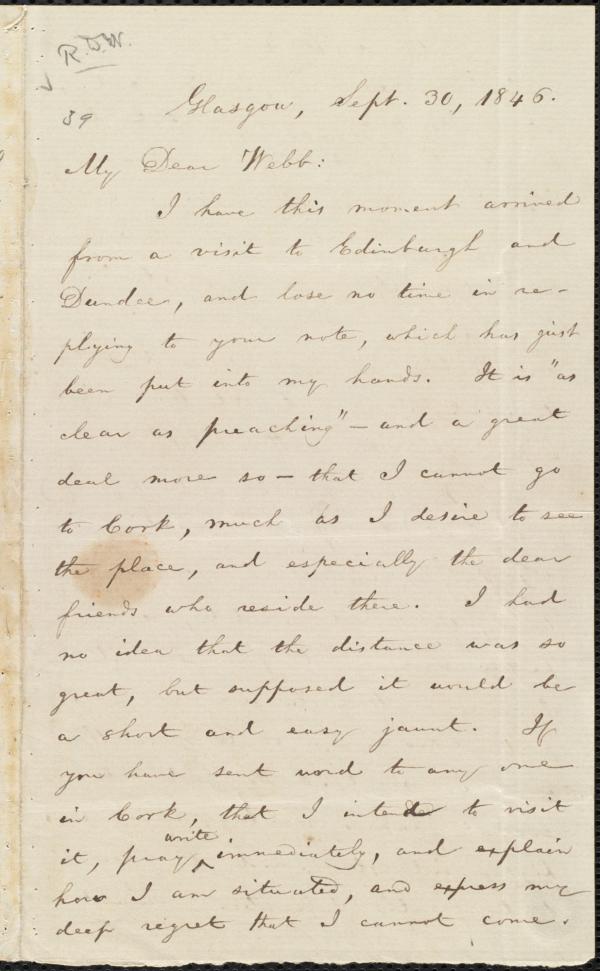 R.D.W.
39
Glasgow, Sept. 30, 1846.
My Dear Webb:
I have this moment arrived
from a visit to Edinburgh and
Dundee, and lose no time in re-
plying to your note, which has just
been put into my hands. It is "as
clear as preaching" — and a great
deal more so — that I cannot go
to Cork, much as I desire to see
the place, and especially the dear
friends who reside there. I had
no idea that the distance was so
great, but supposed it would be
a short and easy jaunt. If
you have sent word to any one
in Cork, that I intend to visit
write
it, pray ‸ immediately, and explain
how I am situated, and express my
deep regret that I cannot come.